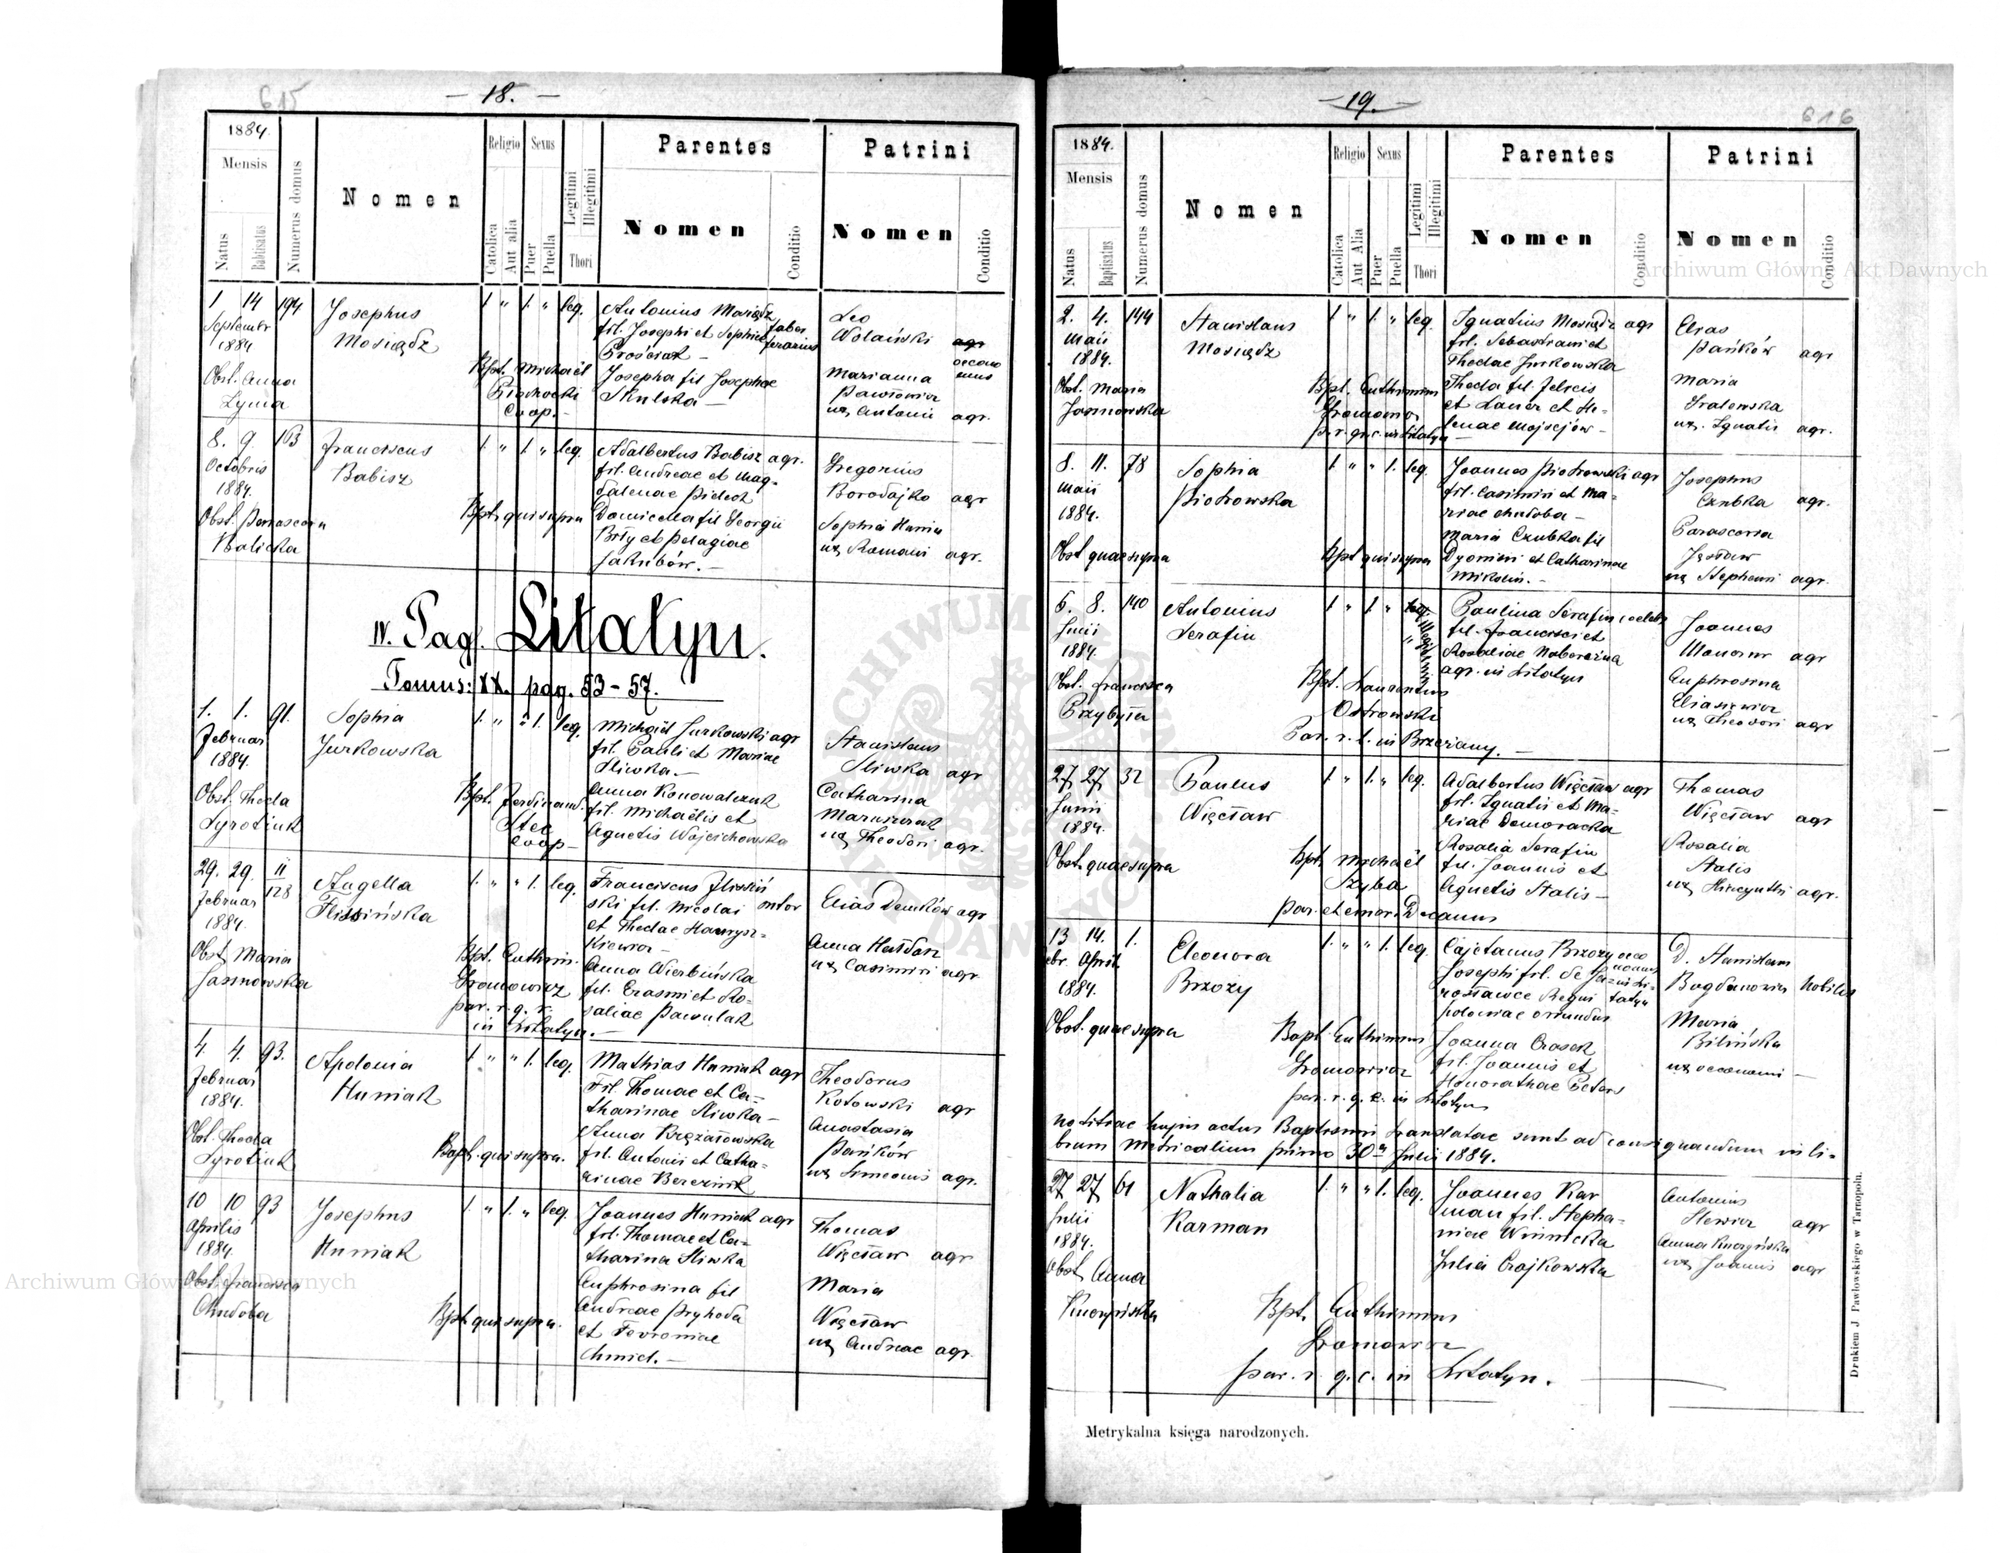 615
— 18. —
1884.
Mensis
Natus
Babtisatus
Numerus domus
Nomen
Religio
Catolica
Aut alia
Sexus
Puer
Puella
Legitimi
Illegitimi
Thori
Parentes
Nomen
Conditio
Patrini
Nomen
Conditio
1 14 194 Josephus 1 " 1. " leg. Antonius Mosiądz Leo
Septembr Mosiądz fil. Josephi et Sophiae faber ferarius Wolański agr
1884 Prościak — oeconomus
Obst. Anna Bpt. Michaël Josepha fil Josephae Marianna
Lyma Skulska —
Coop. — ux Antonii agr.
8. 9. 163 Franciscus 1 " 1 " leg. Adalbertus Babisz agr. Gregorius
Octobris Babisz fil. Andreae et Mag- Borodajko agr
1884. dalenae
Obst. Parascewa Bpt. qui supra fil Georgii Sophia
Halicka Biły et Pelagiae ux Romani agr.
Jakubów. —
IV. Pag. Litatyn.
Tomus: XX. pag. 53 – 57.
1. 1. 91. Sophia 1. " " 1. leg. Michaël Jurkowski agr Stanislaus
Februar Jurkowska fil. Pauli et Mariae Sliwka agr
1884. Sliwka. —
Obst. Theda Bpt. Ferdinand. Anna Konowalczuk Catharina
Syrotiuk Stec fil. Michaëlis et
Coop — Agnetis Wojcichowska ux Theodori agr.
29. 29. II/128 Angella 1. " " 1. leg. Franciscus Elias Demków agr
Februar Flisińska ski fil. Nicolai sutor
1884. et Thedae Hawrysz-
kiewicz —
Obst. Maria Bpt. Euthim. Anna Wierbińska Anna
Jasnowska Gromowicz fil. Erasmi et Ro- ux Casimiri agr
par. r. g. r. saliae Pawulak
in Litatyn. —
4. 4. 93. Apolonia 1 " " 1. leg. Mathias Huniak agr Theodorus
Februar Huniak Fil Thomae et Ca- Kotowski agr
1884. tharinae Sliwka —
Obst. Theda Bapt. qui supra. Anna Anastasia
Syrotiuk fil. Antonii et Catha- Pańków
rinae Berezink ux Simeonis agr.
10 10 93 Josephus 1 " 1. " leg Joannes Huniak agr Thomas
Aprilis Huniak fil. Thomae et Ca- Więcław agr
1884. tharina Sliwka
Obst. Francisca Bpt. qui supra. Euphrosina fil Maria
Chudoba Andreae Pryhoda Więcław
et Fevroniae ux Andreae agr.
Chmiel. —
— 19. —
616
1884.
Mensis
Natus
Baptisatus
Numerus domus
Nomen
Religio
Catolica
Aut Alia
Sexus
Puer
Puella
Legitimi
Illegitimi
Thori
Parentes
Nomen
Conditio
Patrini
Nomen
Conditio
2. 4. 144 Stanislaus 1 " 1. " leg. Ignatius Mosiądz agr Elias
Maii Mosiądz fil. Sebastiani et Pańków agr
1884. Thedae Jurkowska
Obst. Maria Bpt. Euthimius Theda fil. Felicis Maria
Jasnowska Gromowicz
par. gr. c. in Litatyn lenae Mojsejów — ux. Ignatii agr.
8. 11. 78 Sophia 1. " " 1. leg. Joannes Piotrowski agr Josephus
Maii Piotrowska fil. Casimiri et Ma- Czubka agr.
1884. riae Chudoba —
Obst quae supra Bpt qui supra Maria Czubka fil Parascevia
Dyonisii et Catharinae
Mikulin. — ux Stephani agr.
6. 8. 140 Antonius 1 " 1 " leg. Illegitimi Paulina Serafin caelebs Joannes
Junii Serafin fil. Francisci et agr
1884. Rosaliae
agr. in Litatyn
Obst. Francisca Bpt. Laurentius Euphrosina
Przybyła Ostrowski Eliasiewicz
Par. r. l. in Brzeżany. — ux Theodori agr
27 27 32 Paulus 1. " 1. " leg. Adalbertus Więcław agr Thomas
Junii Więcław fil. Ignatii et Ma- Więcław agr
1884. riae Domoracka
Obst. quae supra Bpt. Michaël Rosalia Serafin Rosalia
Szyba fil. Joannis et Stalis
par. et emer. Decanus Agnetis Stalis — ux Hiacynthi agr.
13 14. 1. Eleonora 1. " " 1. leg. Cajetanus Brzozy oeconomus D. Stanislaus
ebr. April. Brzozy Josephi fil. de in Litatyn Bogdanowicz nobilis
1884. rosławce Regni
Poloniae oriundus
Obst. quae supra Bapt Euthimius Joanna Maria
Gromowicz fil. Joannis et Bilińska
par. r. g. c. in Litatyn Honorathae ux oeconomi —
notitiae hujus actus Baptismi translatae sunt ad consignandum in li-
brum Metricalium primo 30a Julii 1884.
27 27 61 Nathalia 1. " " 1. leg. Joannes Kar Antonius
Julii Karman man fil. Stepha- agr
1884. niae Winnicka Anna
Obst. Anna Julia Czajkowska ux Joannis agr
Bpt. Euthimius
Gromowicz
par. r. g. c. in Litatyn.
Metrykalna księga narodzonych.
Drukiem J Pawłowskiego w Tarnopolu.
Archiwum Główne Akt Dawnych
Archiwum Główne Akt Dawnych
ARCHIWUM GŁÓWNE AKT DAWNYCH